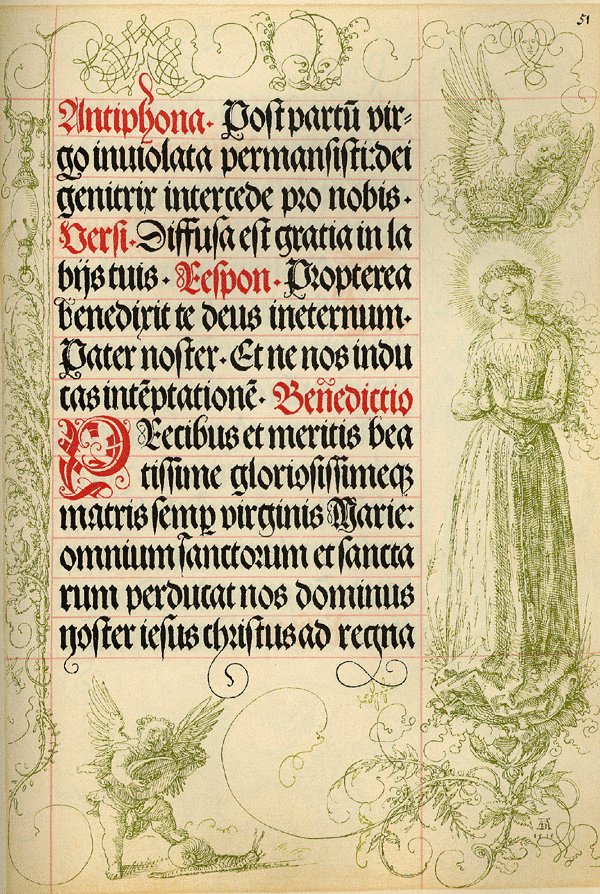 51
Antiphona. Post partū vir-
go inuiolata permansisti: dei
genitrix intercede pro nobis.
Versi. Diffusa est gratia in la
bijs tuis. Respon. Propterea
benedixit te deus ineternum.
Pater noster. Et ne nos indu
cas intēptationē. Ben̄edictio
PRecibus et meritis bea
tissime gloriosissimeq₃
matris semꝑ virginis Marie:
omnium sanctorum et sancta
rum perducat nos dominus
noster iesus christus ad regna
AD
1515